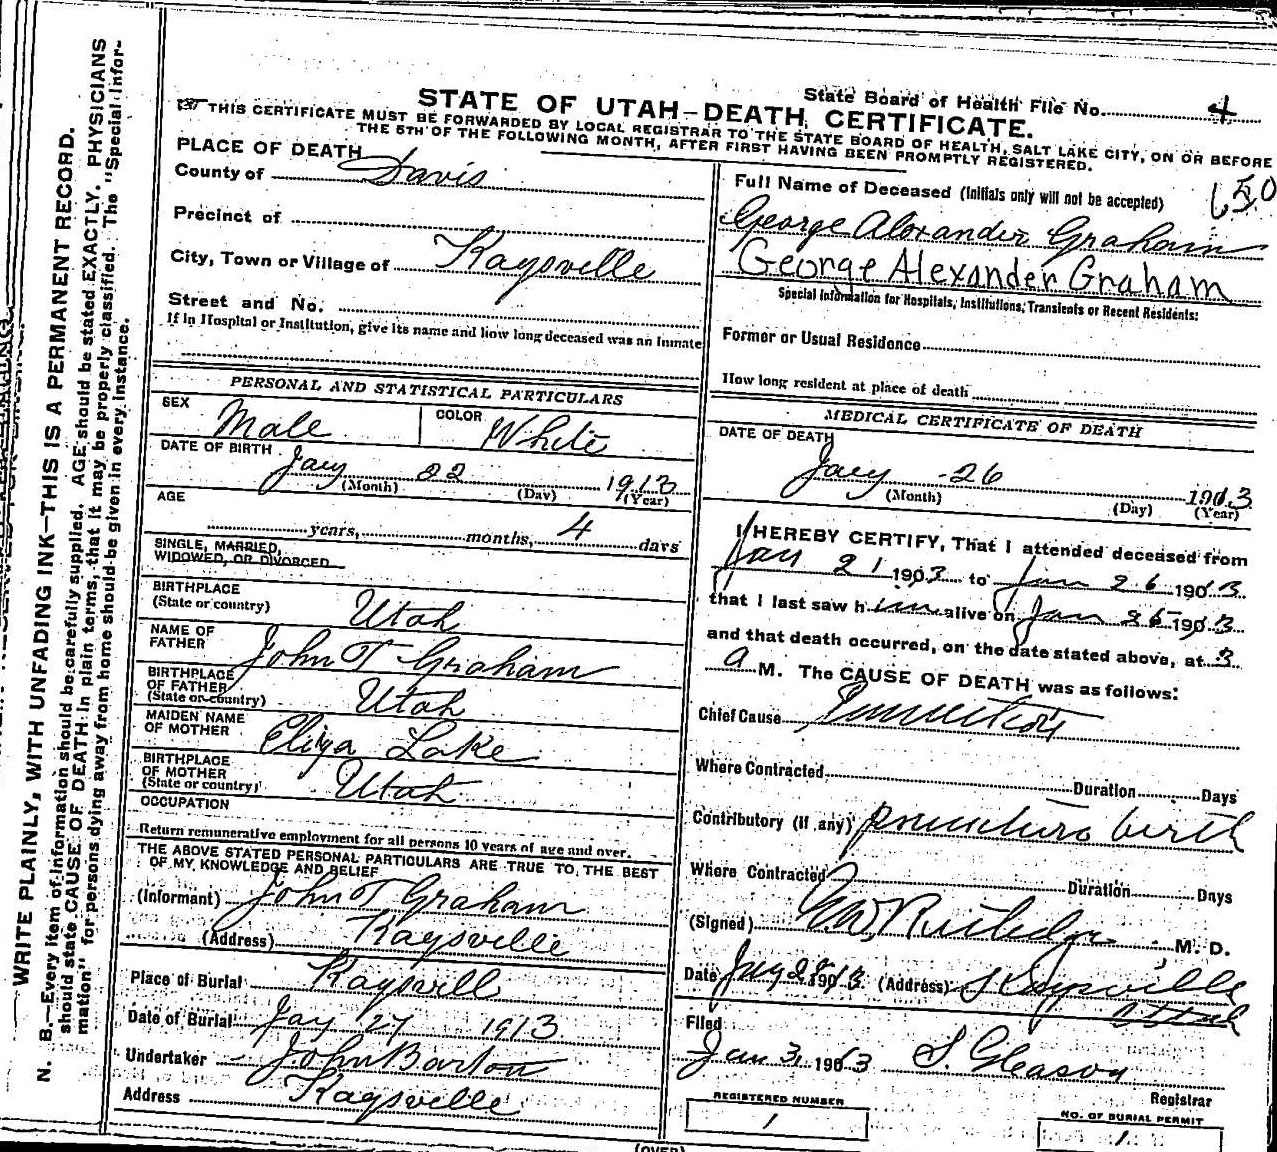 State Board of Health File No. 4
STATE OF UTAH—DEATH CERTIFICATE.
THIS CERTIFICATE MUST BE FORWARDED BY LOCAL REGISTRAR TO THE STATE BOARD OF HEALTH, SALT LAKE CITY, ON OR BEFORE
THE 5TH OF THE FOLLOWING MONTH, AFTER FIRST HAVING BEEN PROMPTLY REGISTERED.
PLACE OF DEATH
County of Davis
Precinct of
City, Town or Village of Kaysville
Street and No.
If in Hospital or Institution, give its name and how long deceased was an inmate
PERSONAL AND STATISTICAL PARTICULARS
SEX Male COLOR White
DATE OF BIRTH Jany 22 1913
(Month) (Day) (Year)
AGE
years, months, 4 days
SINGLE, MARRIED,
WIDOWED, OR DIVORCED
BIRTHPLACE
(State or country) Utah
NAME OF
FATHER John T Graham
BIRTHPLACE
OF FATHER
(State or country) Utah
MAIDEN NAME
OF MOTHER Eliza Lake
BIRTHPLACE
OF MOTHER
(State or country) Utah
OCCUPATION
Return remunerative employment for all persons 10 years of age and over.
THE ABOVE STATED PERSONAL PARTICULARS ARE TRUE TO THE BEST
OF MY KNOWLEDGE AND BELIEF
(Informant) John T Graham
(Address) Kaysville
Place of Burial Kaysvill
Date of Burial Jay 27 1913
Undertaker John Barton
Address Kaysville
Full Name of Deceased (Initials only will not be accepted)
150
George Alexander Graham
George Alexander Graham
Special Information for Hospitals, Institutions, Transients or Recent Residents:
Former or Usual Residence
How long resident at place of death
MEDICAL CERTIFICATE OF DEATH
DATE OF DEATH
Jany 26 1913
(Month) (Day) (Year)
I HEREBY CERTIFY, That I attended deceased from
Jan 21 1903 to Jan 26 1903
that I last saw him alive on Jan 25 1903
and that death occurred, on the date stated above, at 3
a M. The CAUSE OF DEATH was as follows:
Chief Cause
Where Contracted Duration Days
Contributory (if any) premature birth
Where Contracted Duration Days
(Signed) Rutledge M. D.
Date Jany 28 1913 (Address) Kaysville
Utah
Filed
Jan 31 1913 S. Gleason
Registrar
REGISTERED NUMBER
1
NO. OF BURIAL PERMIT
1
(OVER)
WRITE PLAINLY, WITH UNFADING INK—THIS IS A PERMANENT RECORD.
N. B.—Every item of information should be carefully supplied. AGE should be stated EXACTLY. PHYSICIANS
should state CAUSE OF DEATH in plain terms, that it may be properly classified. The "Special Infor-
mation" for persons dying away from home should be given in every instance.